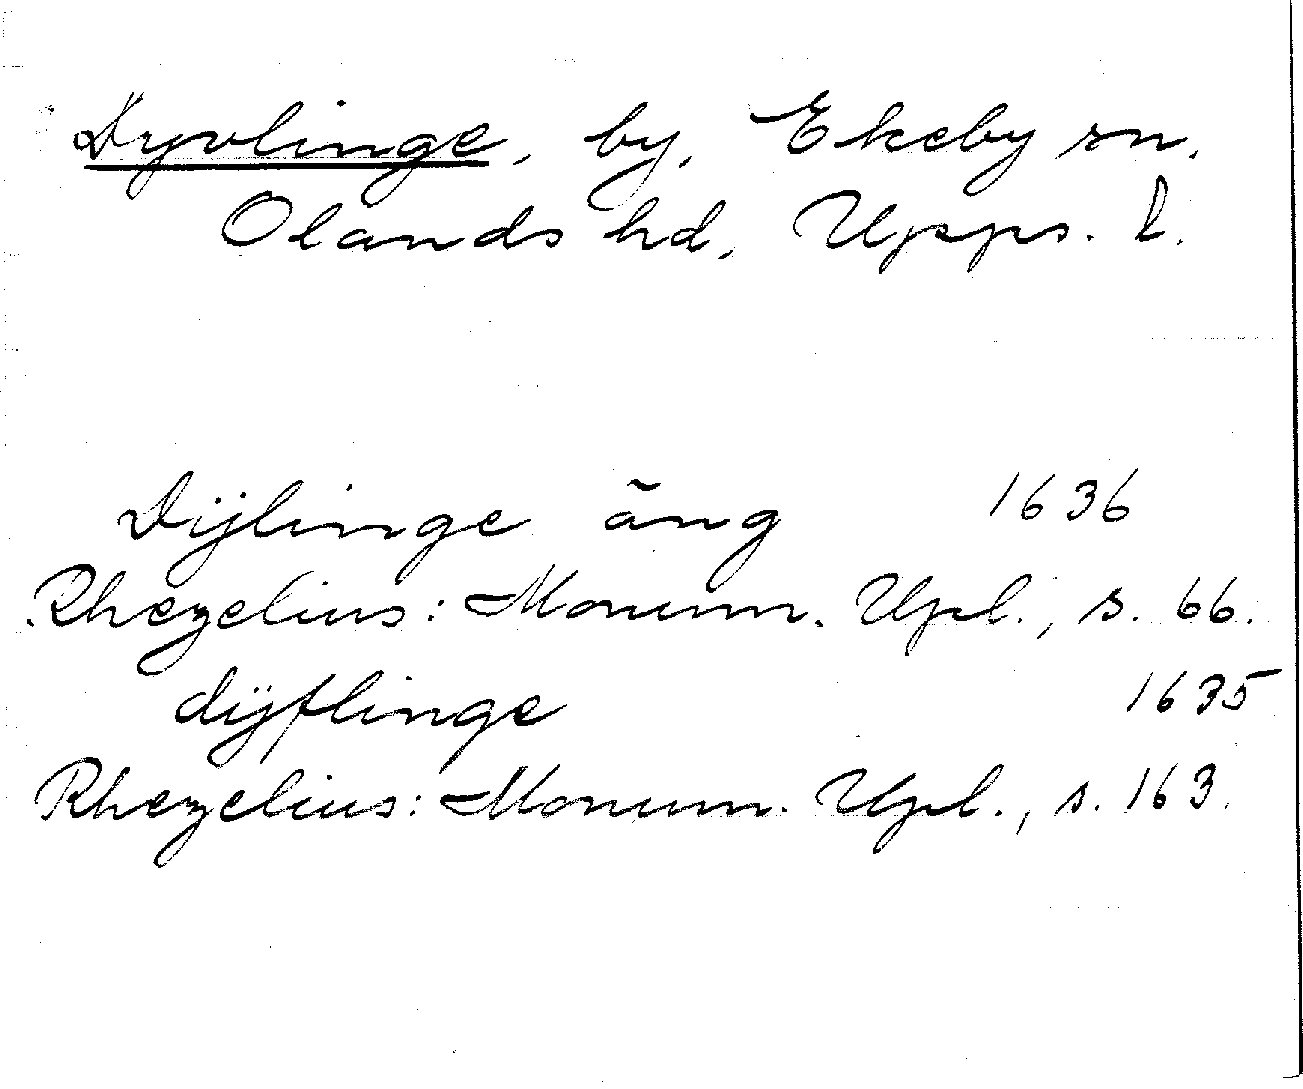 Dyvlinge, by, Ekeby sn,
Olands hd, Upps. l.
Dijlinge äng 1636
Rhezelius: Monum. Upl., s. 66.
dÿflinge 1635
Rhezelius: Monum. Upl., s. 163.